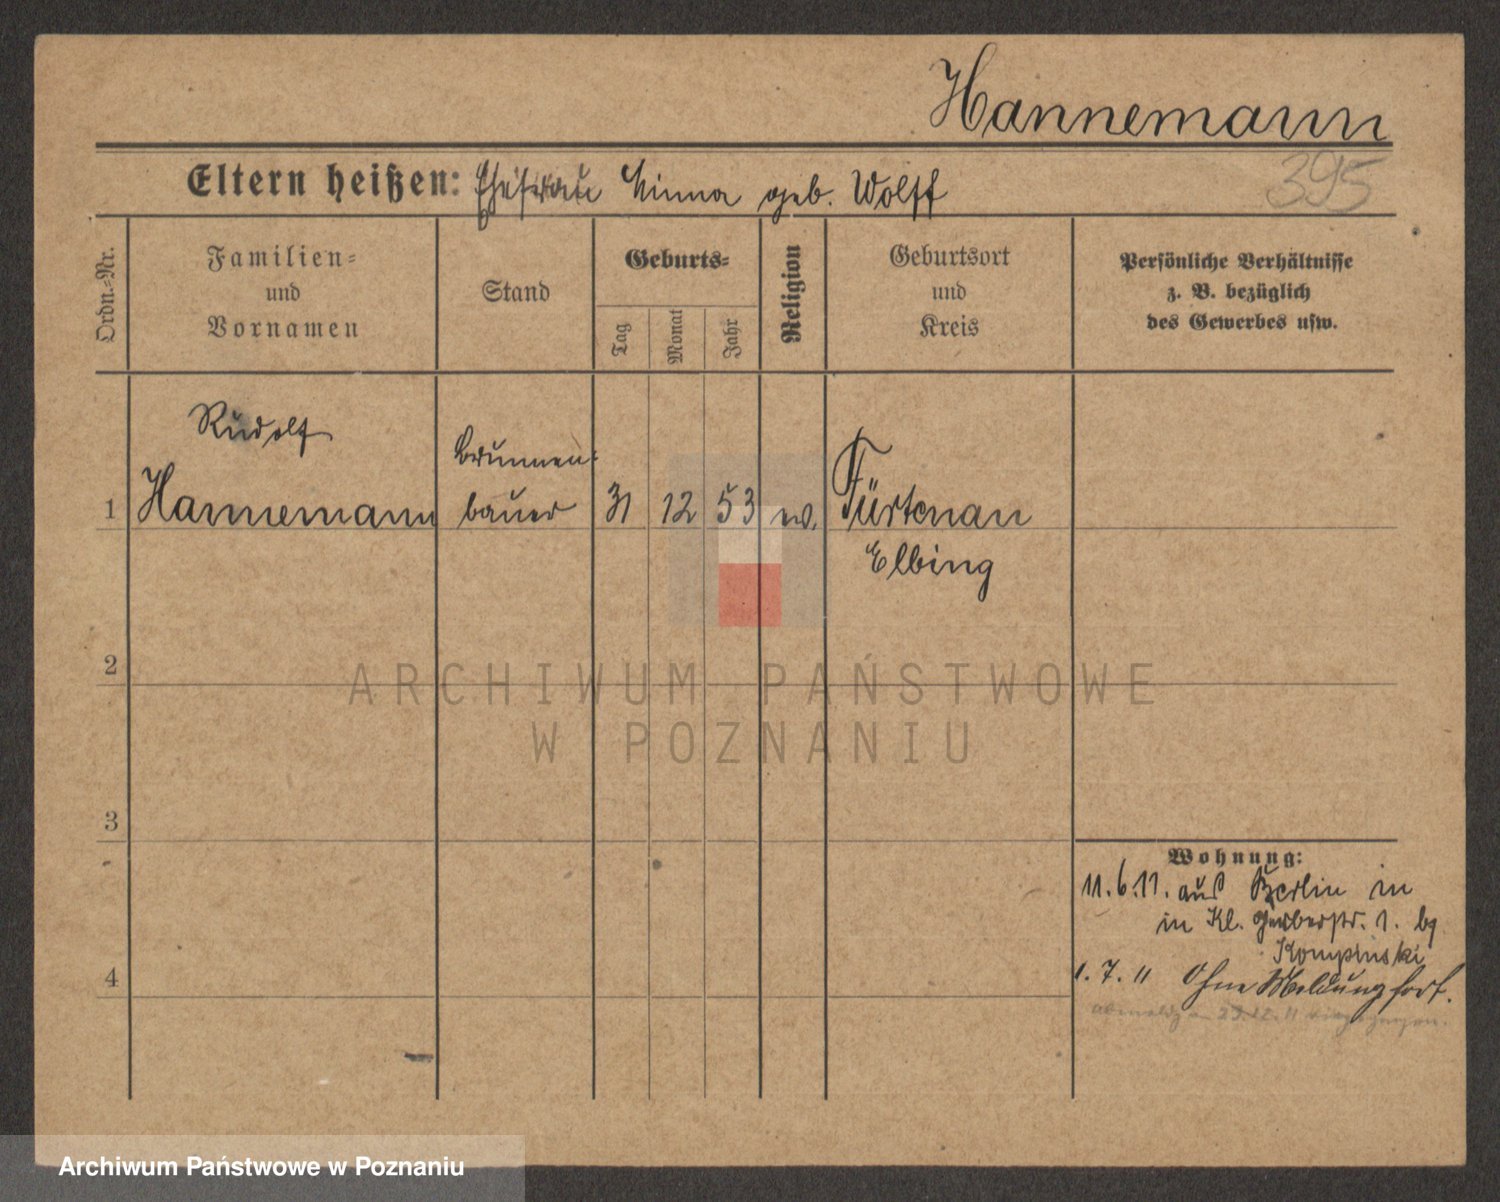 Hannemann
395
Eltern heißen: Ehefrau Minna geb. Wolff
Ordn.-Nr.
Familien-
und
Vornamen
Stand
Geburts-
Tag
Monat
Jahr
Religion
Geburtsort
und
Kreis
Persönliche Verhältnisse
z. B. bezüglich
des Gewerbes usw.
Rudolf
Brunnen-
1 Hannemann bauer 31 12 53 ev. Fürstenau
Elbing
2
ARCHIWUM PAŃSTWOWE
W POZNANIU
3
Wohnung:
11.6.11. aus Berlin in
in Kl. Gerberstr. 1. bg
Kompinski
4
1.7.11 Ohne Meldung fort.
23.12.11
Archiwum Państwowe w Poznaniu